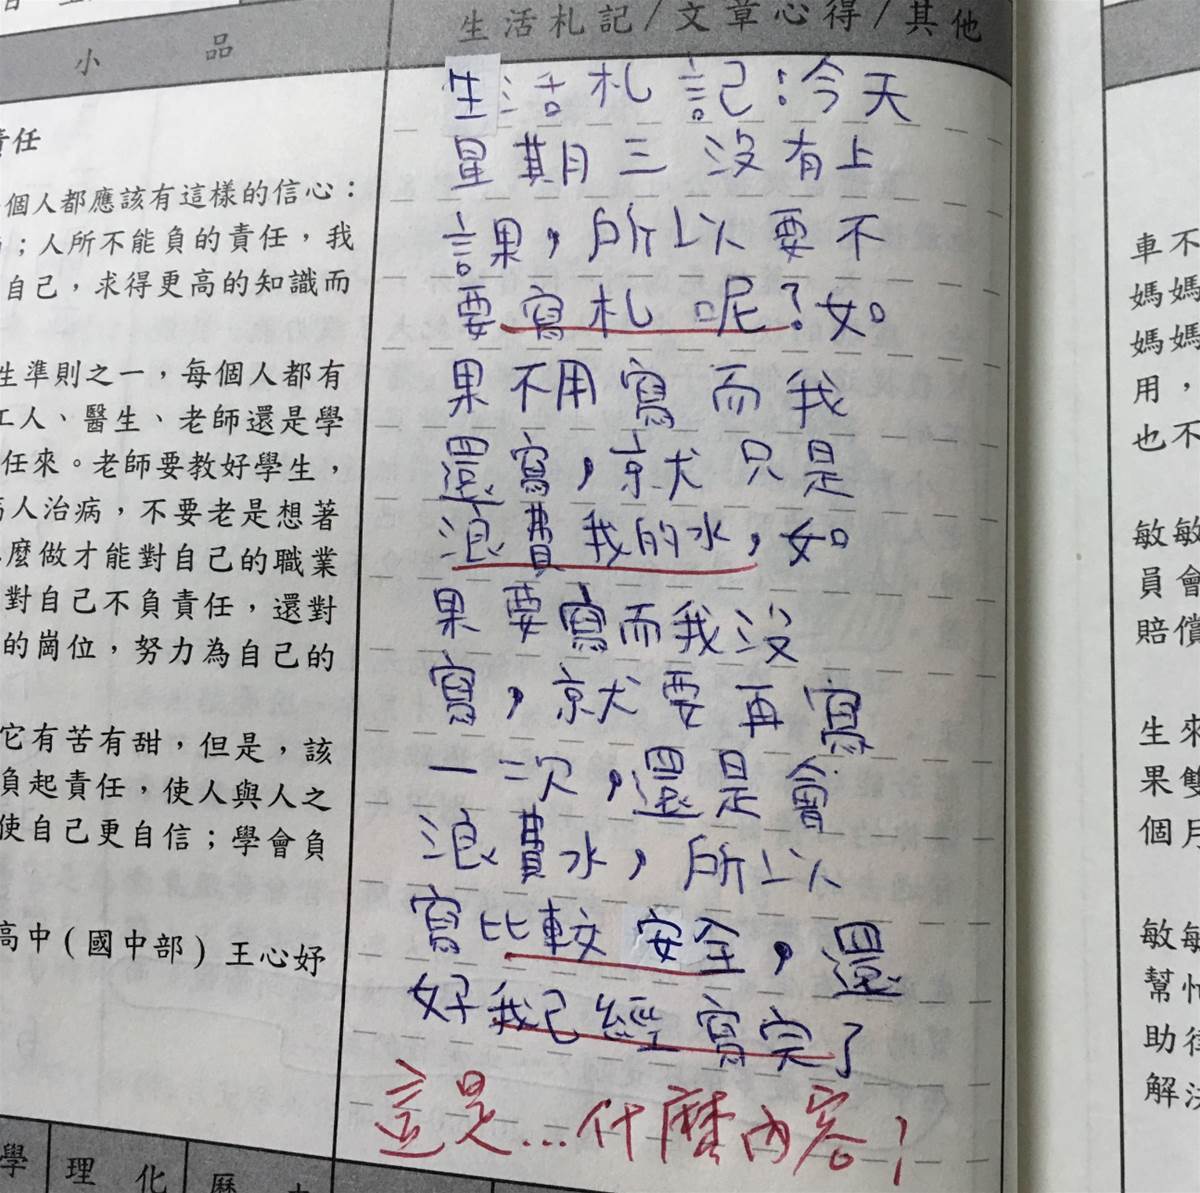 小 品
生活札記/文章心得/其他
責任
個人都應該有這樣的信心：
；人所不能負的責任，我
自己，求得更高的知識而
生準則之一，每個人都有
工人、醫生、老師還是學
任來。老師要教好學生，
人治病，不要老是想著
麼做才能對自己的職業
對自己不負責任，還對
的崗位，努力為自己的
它有苦有甜，但是，該
負起責任，使人與人之
使自己更自信；學會負
高中(國中部) 王心妤
生活札記：今天
星期三 沒有上
課，所以要不
要寫札 呢？如
果不用寫而我
還寫，就只是
浪費我的水，如
果要寫而我沒
寫，就要再寫
一次，還是會
浪費水，所以
寫比較安全，還
好我已經寫完了
這是...什麼內容！
學 理 化 歷
車不
媽媽
媽媽
用，
也不
敏敏
員會
賠償
生來
果雙
個月
敏敏
幫忙
助律
解決